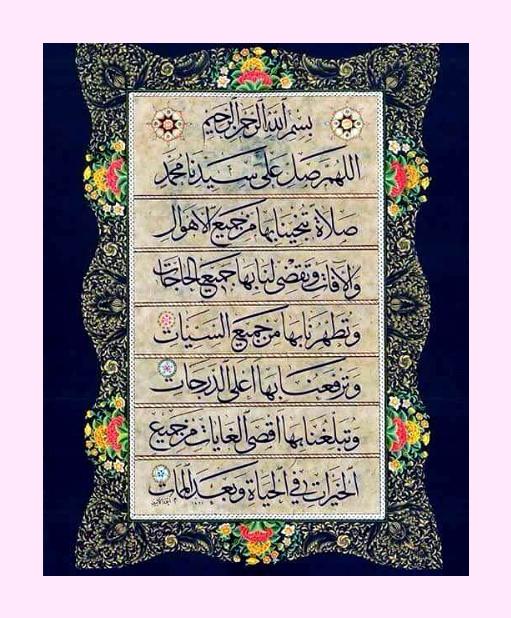 بسم الله الرحمن الرحيم
اللهم صل على سيدنا محمد
صلاة تنجينا بها من جميع الاهوال
والآفات وتقضى لنا بها جميع الحاجات
وتطهرنا بها من جميع السيئات
وترفعنا بها اعلى الدرجات
وتبلغنا بها اقصى الغايات من جميع
الخيرات في الحياة وبعد الممات